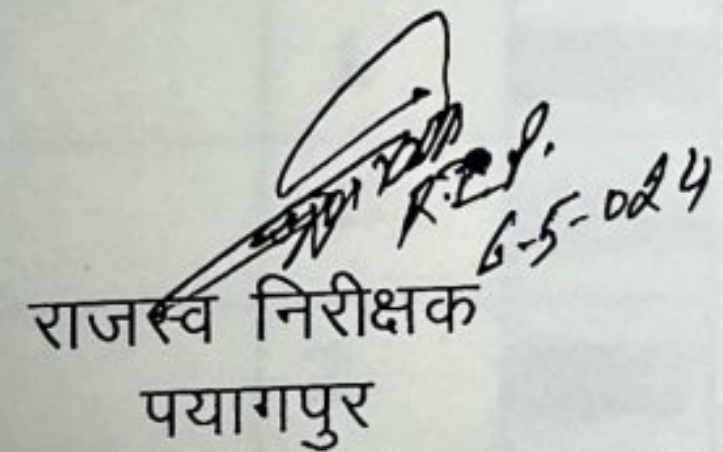 6-5-024
राजस्व निरीक्षक
पयागपुर